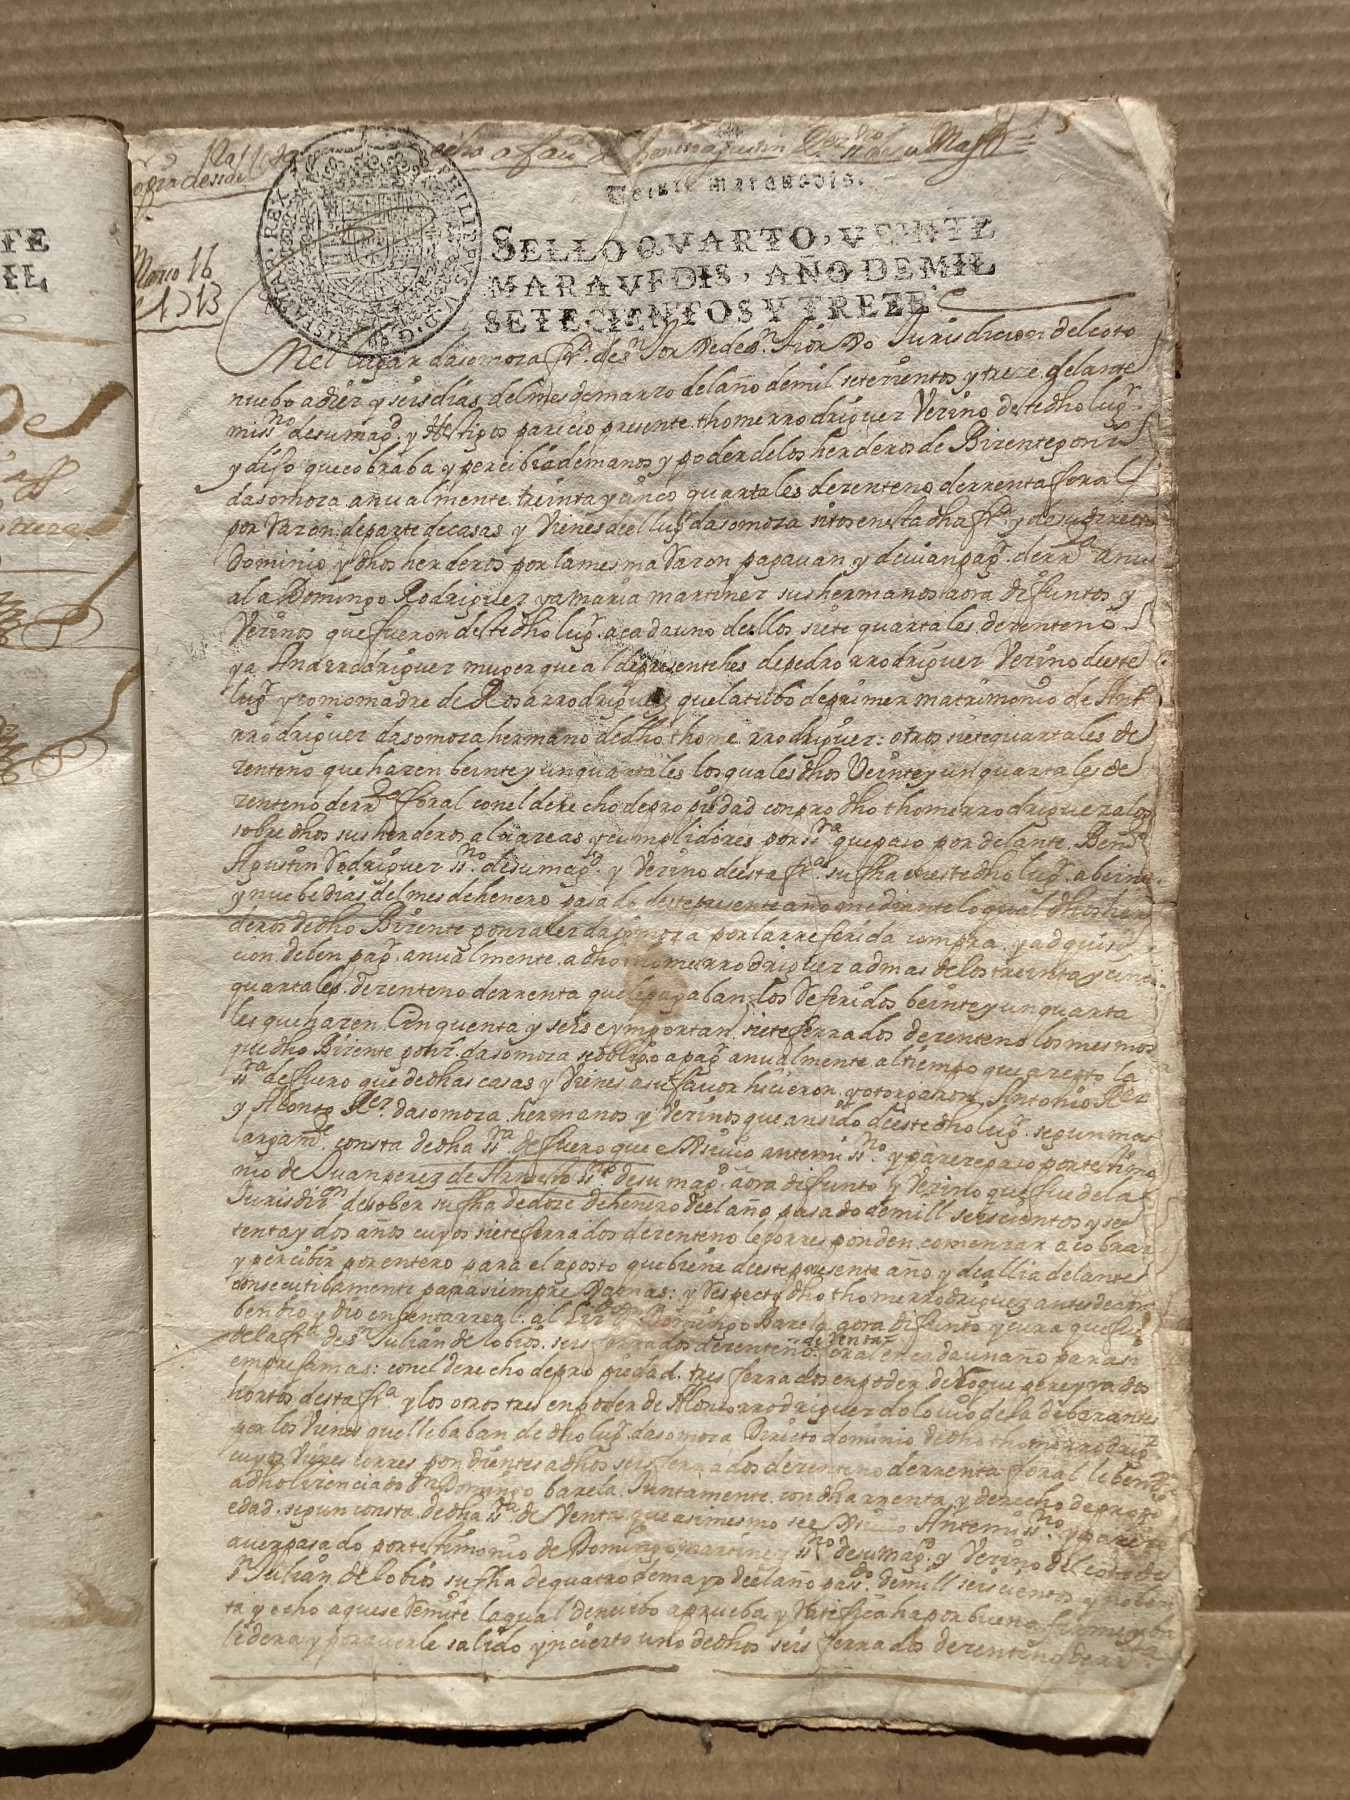 Veinte maravedis.
SELLO QVARTO, VEINTE
MARAVEDIS, AÑO DE MIL
SETECIENTOS Y TREZE.
PHILIPPVS V D G
HISPANIAR REX
Marco 16
1713
TE
IL
nuebo adiez y seis dias del mes de marzo del año de mil setecientos y treze. delante
miss.no de su mag.d y testigos parecio presente thome rrodriguez Vezino deste dho lug.r
y dijo que cobraba y percibia de manos y poder de los herederos de Bizente
dasomoza anualmente treinta y cinco quartales de zenteno de rrenta foral
por Razon de parte de casas y Vienes del lug.r dasomoza sitos en esta dha
Dominio y dhos herederos por la mesma Razon pagavan y devian pag.r de rr.ta anu
al a Domingo Rodriguez y a Maria martinez sus hermanos aora difuntos y
Vezinos que fueron deste dho lug.r a cada uno dellos siete quartales de zenteno
ya Ana rrodriguez muger que al de presente hes de pedro rrodriguez Vezino deeste
lug.r y como madre de Rosa rrodriguez que la tubo de primer matrimonio de Ant.o
rrodriguez dasomoza hermano de dho thome rrodriguez: otros siete quartales de
zenteno que hazen beinte y un quartales los quales dhos Veinte y un quartales de
zenteno de rr.ta foral con el derecho de propiedad conpro dho thome rrodriguez a los
sobre dhos sus herederos y cumplidores por ss.ra que paso por delante
Agustin Rodriguez ss.no de su mag.d y Vezino deesta f.a su fha en este dho lug.r a beinte
y nuebe dias del mes de henero pasado deste presente año mediante lo qual dhos here
deros de dho Bizente gonzalez dasomoza por la rreferida compra y adquisi
cion deben pag.r anualmente a dho thome rrodriguez ademas de los treinta y cinco
quartales de zenteno de rrenta que le pagaban los Referidos beinte y un quarta
les que hazen Cinquenta y seis e ymportan siete ferrados de zenteno los mesmos
que dho Bizente gonz.z dasomoza se obligo a pag.r anualmente al tiempo que azepto la
ss.ra de fuero que de dhas casas y Vienes a su favor hicieron y otorgaron Antonio R.ez
y Alonso R.ez dasomoza hermanos y Vezinos que an sido deeste dho lug.r segun mas
largam.te consta de dha ss.ra de fuero que exsivio antemi ss.no y pareze paso por testimo
nio de Juan perez de ss.no de su mag.d aora difunto y Vezino que fue de la
Jurisd.on de sober su fha de doze de henero del año pasado de mill seiscientos y se
tenta y dos años cuyos siete ferrados de zenteno le corresponden comenzar a cobrar
y percibir por entero para el agosto que biene deeste presente año y de alli adelante
consecutibamente para siempre Xamas: y Respecto dho thome rrodriguez antes de aora
bendio y dio en benta rreal al Liz.do Domingo Barela aora difunto y cura que fue
de la f.a de s.n Julian de lobios seis ferrados de zenteno de rrenta foral en cada un año para si
empre jamas: con el derecho de propiedad tres ferrados en poder de Roque pereyra dos
hortos desta f.a y los otros tres en poder de Alonso rrodriguez
por los Vienes que llebaban de dho lug.r dasomoza Direito dominio de dho thome rrodrig.z
cuyos Vienes correspondientes a dhos seis ferrados de zenteno de rrenta foral le bendio
a dho lizenciado Domingo barela Juntamente con dha rrenta y derecho de propi
edad segun consta de dha ss.ra de Venta que asimesmo se exsivio Antemi ss.no y pareze
aver pasado por testimonio de Domingo martinez ss.no de su mag.d y Vezino del coto de
s.n Julian de lobios su fha de quatro de mayo del año pas.do de mill seiscientos y noben
ta y ocho a que se Remite la qual de nuebo aprueba y Ratifica ha por buena firme y ba
ledera y por averle salido yncierto uno de dhos seis ferrados de zenteno de rr.ta